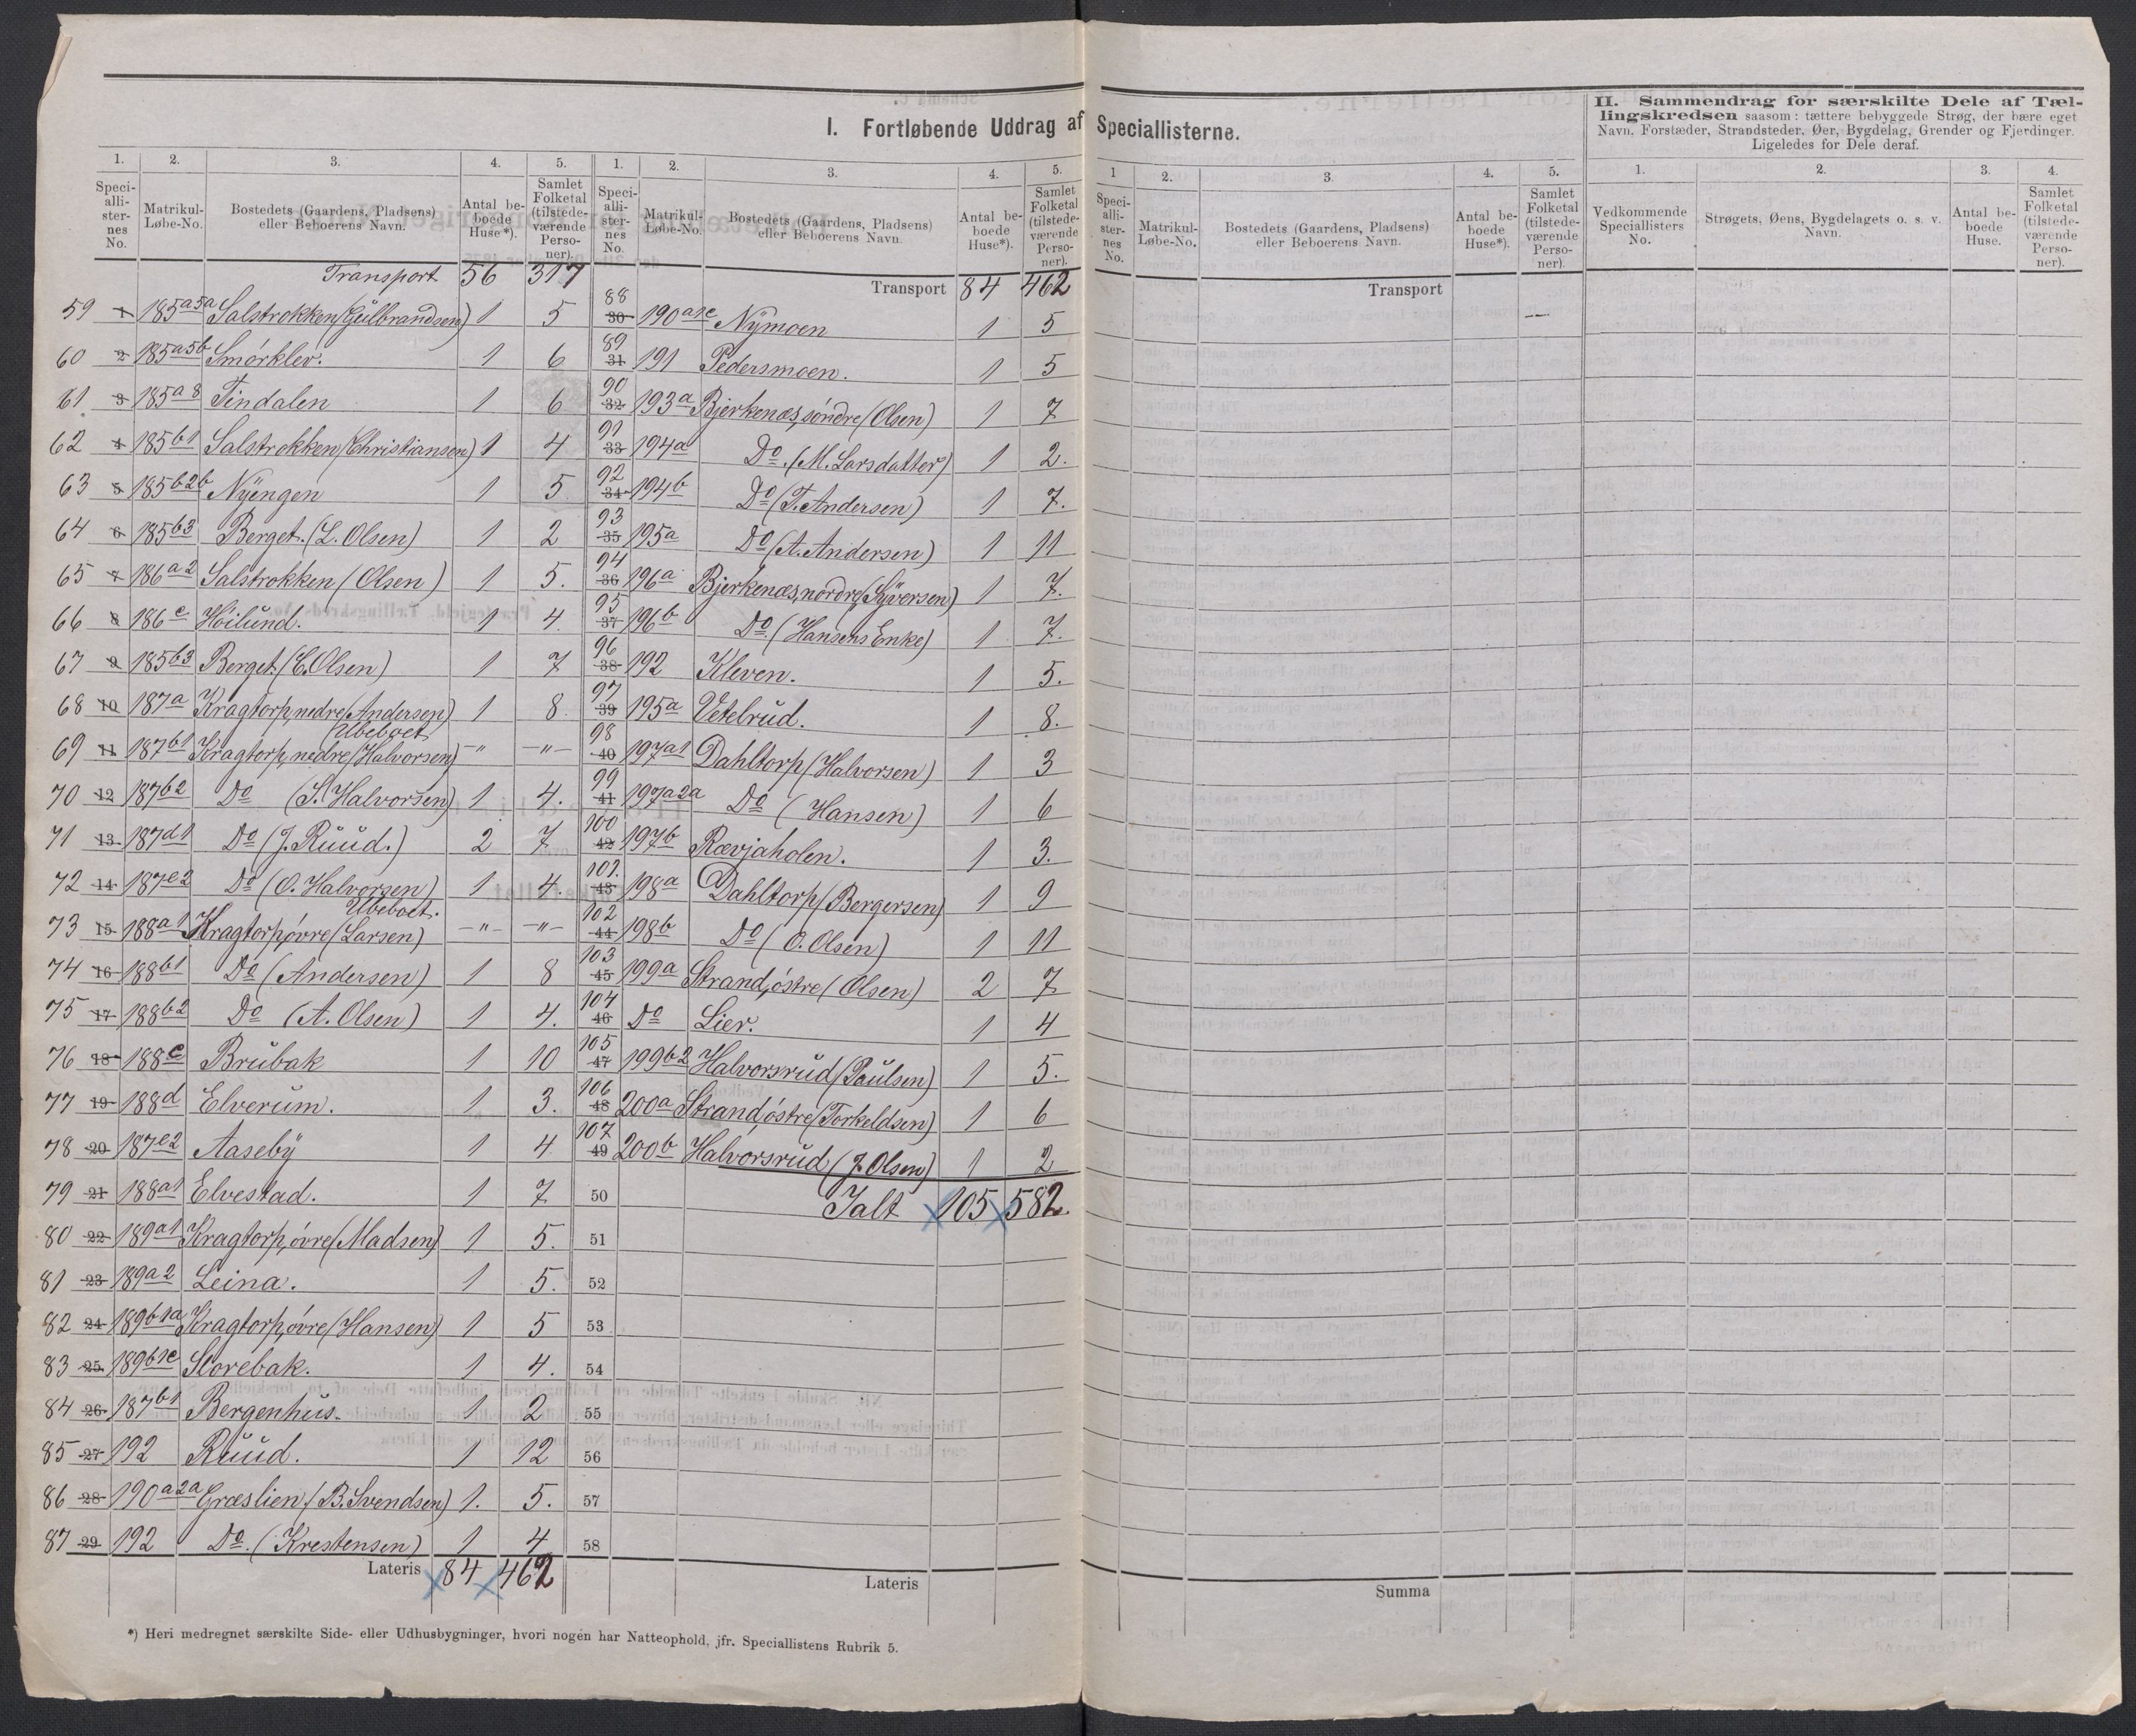 I. Fortløbende Uddrag af Speciallisterne.
1. 2. 3. 4. 5.
Speciallisternes No. Matrikul-Løbe-No. Bostedets (Gaardens, Pladsens) eller Beboerens Navn. Antal beboede Huse*). Samlet Folketal (tilstedeværende Personer).
Transport 56 317
59 1 185a5a Salstrokken (Gulbrandsen) 1 5
60 2 185a5b Smórklev. 1 6
61 3 185a8 Tindalen 1 6
62 4 185b1 Salstrokken (Christiansen) 1 4
63 5 185b2b Nÿengen 1 5
64 6 185b3 Berget. (L. Olsen) 1 2
65 7 186a2 Salstrokken (Olsen) 1 5.
66 8 186c Höilund. 1 4.
67 9 185b3 Berget (C. Olsen) 1 7
68 10 187a Kragtorp, nedre (Andersen) 1 8
Ubeboet.
69 11 187b1 Kragtorp, nedre (Halvorsen) -"- -"-
70 12 187b2 Do (S. Halvorsen) 1 4.
71 13 187d1 Do (J. Ruud.) 2 7
72 14 187e2 Do (O. Halvorsen) 1 4.
Ubeboet.
73 15 188a1 Kragtorp, óvre (Larsen) -"- -"-
74 16 188b1 Do (Andersen) 1 8
75 17 188b2 Do (A. Olsen) 1 4.
76 18 188c Brubak 1 10
77 19 188d Elverum. 1 3.
78 20 187e2 Aasebÿ 1 4
79 21 188a1 Elvestad. 1 7
80 22 189a1 Kragtorp, óvre (Madsen) 1 5.
81 23 189a2 Leina. 1 5.
82 24 189b1a Kragtorp, óvre (Hansen) 1 5
83 25 189b1c Storebak. 1 4.
84 26 187b1 Bergenhus. 1 2
85 27 192 Ruud. 1 12
86 28 190a2a Græslien (B. Svendsen) 1. 5.
87 29 192 Do. (Krestensen) 1 4
Lateris 84 462
*) Heri medregnet særskilte Side- eller Udhusbygninger, hvori nogen har Natteophold, jfr. Speciallistens Rubrik 5.
1. 2. 3. 4. 5.
Speciallisternes No. Matrikul-Løbe-No. Bostedets (Gaardens, Pladsens) eller Beboerens Navn. Antal beboede Huse*). Samlet Folketal (tilstedeværende Personer).
Transport 84 462
88 30 190a1c Nÿmoen 1 5
89 31 191 Pedersmoen. 1 5
90 32 193a Bjerkenæs, söndre (Olsen) 1 7
91 33 194a Do. (M. Larsdatter) 1 2.
92 34 194b Do (T. Andersen) 1 7.
93 35 195a Do (A. Andersen) 1 11
94 36 196a Bjerkenæs, nordre (Syversen) 1 7.
95 37 196b Do. (Hansens Enke) 1 7.
96 38 192 Kleven. 1 5.
97 39 195a Vetelrud. 1 8.
98 40 197a1 Dahltorp (Halvorsen) 1 3
99 41 197a2a Do (Hansen) 1 6
100 42 197b Rævjaholen. 1 3.
101. 43 198a Dahltorp (Bergersen) 1 9
102 44 198b Do (O. Olsen) 1 11
103 45 199a Strand, östre (Olsen) 2 7
104 46 Do Lier. 1 4
105 47 199b2 Halvorsrud (Paulsen) 1 5.
106 48 200a Strand östre (Torkeldsen) 1 6
107 49 200b Halvorsrud (J. Olsen) 1 2
50 Ialt 105 582.
51
52
53
54
55
56
57
58
Lateris
1 2. 3. 4. 5.
Speciallisternes No. Matrikul-Løbe-No. Bostedets (Gaardens, Pladsens) eller Beboerens Navn. Antal beboede Huse*). Samlet Folketal (tilstedeværende Personer).
Transport
Summa
II. Sammendrag for særskilte Dele af Tæl-
lingskredsen saasom: tættere bebyggede Strøg, der bære eget
Navn, Forstæder, Strandsteder, Øer, Bygdelag, Grender og Fjerdinger.
Ligeledes for Dele deraf.
1. 2. 3. 4.
Vedkommende Speciallisters No. Strøgets, Øens, Bygdelagets o. s. v. Navn. Antal beboede Huse. Samlet Folketal (tilstedeværende Personer).